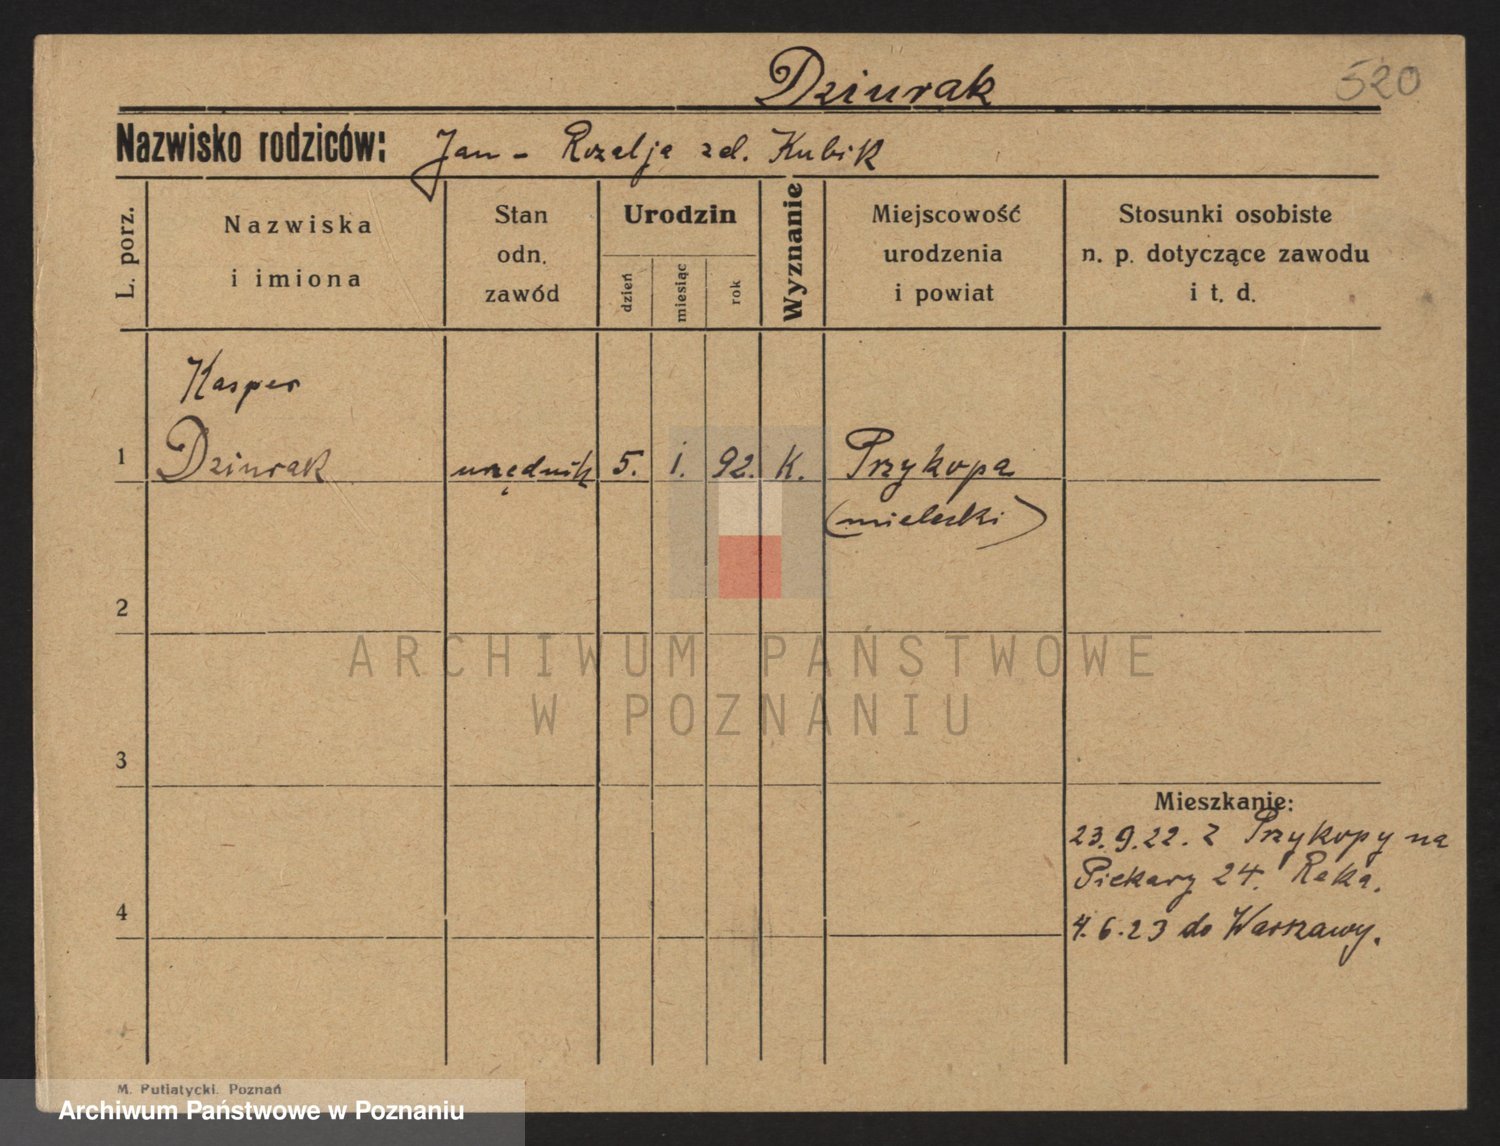 Dziurak
520
Nazwisko rodziców: Jan - Rozalja zd. Kubik
L. porz.
Nazwiska
i imiona
Stan
odn.
zawód
Urodzin
dzień
miesiąc
rok
Wyznanie
Miejscowość
urodzenia
i powiat
Stosunki osobiste
n. p. dotyczące zawodu
i t. d.
Kasper
1 Dziurak urzędnik 5. 1. 92. K. Przykopa
(mielecki)
2
ARCHIWUM PAŃSTWOWE
W POZNANIU
3
Mieszkanie:
23.9.22. Z Przykopy na
Piekary 24. Reka.
4
4.6.23 do Warszawy.
M. Putiatycki. Poznań
Archiwum Państwowe w Poznaniu